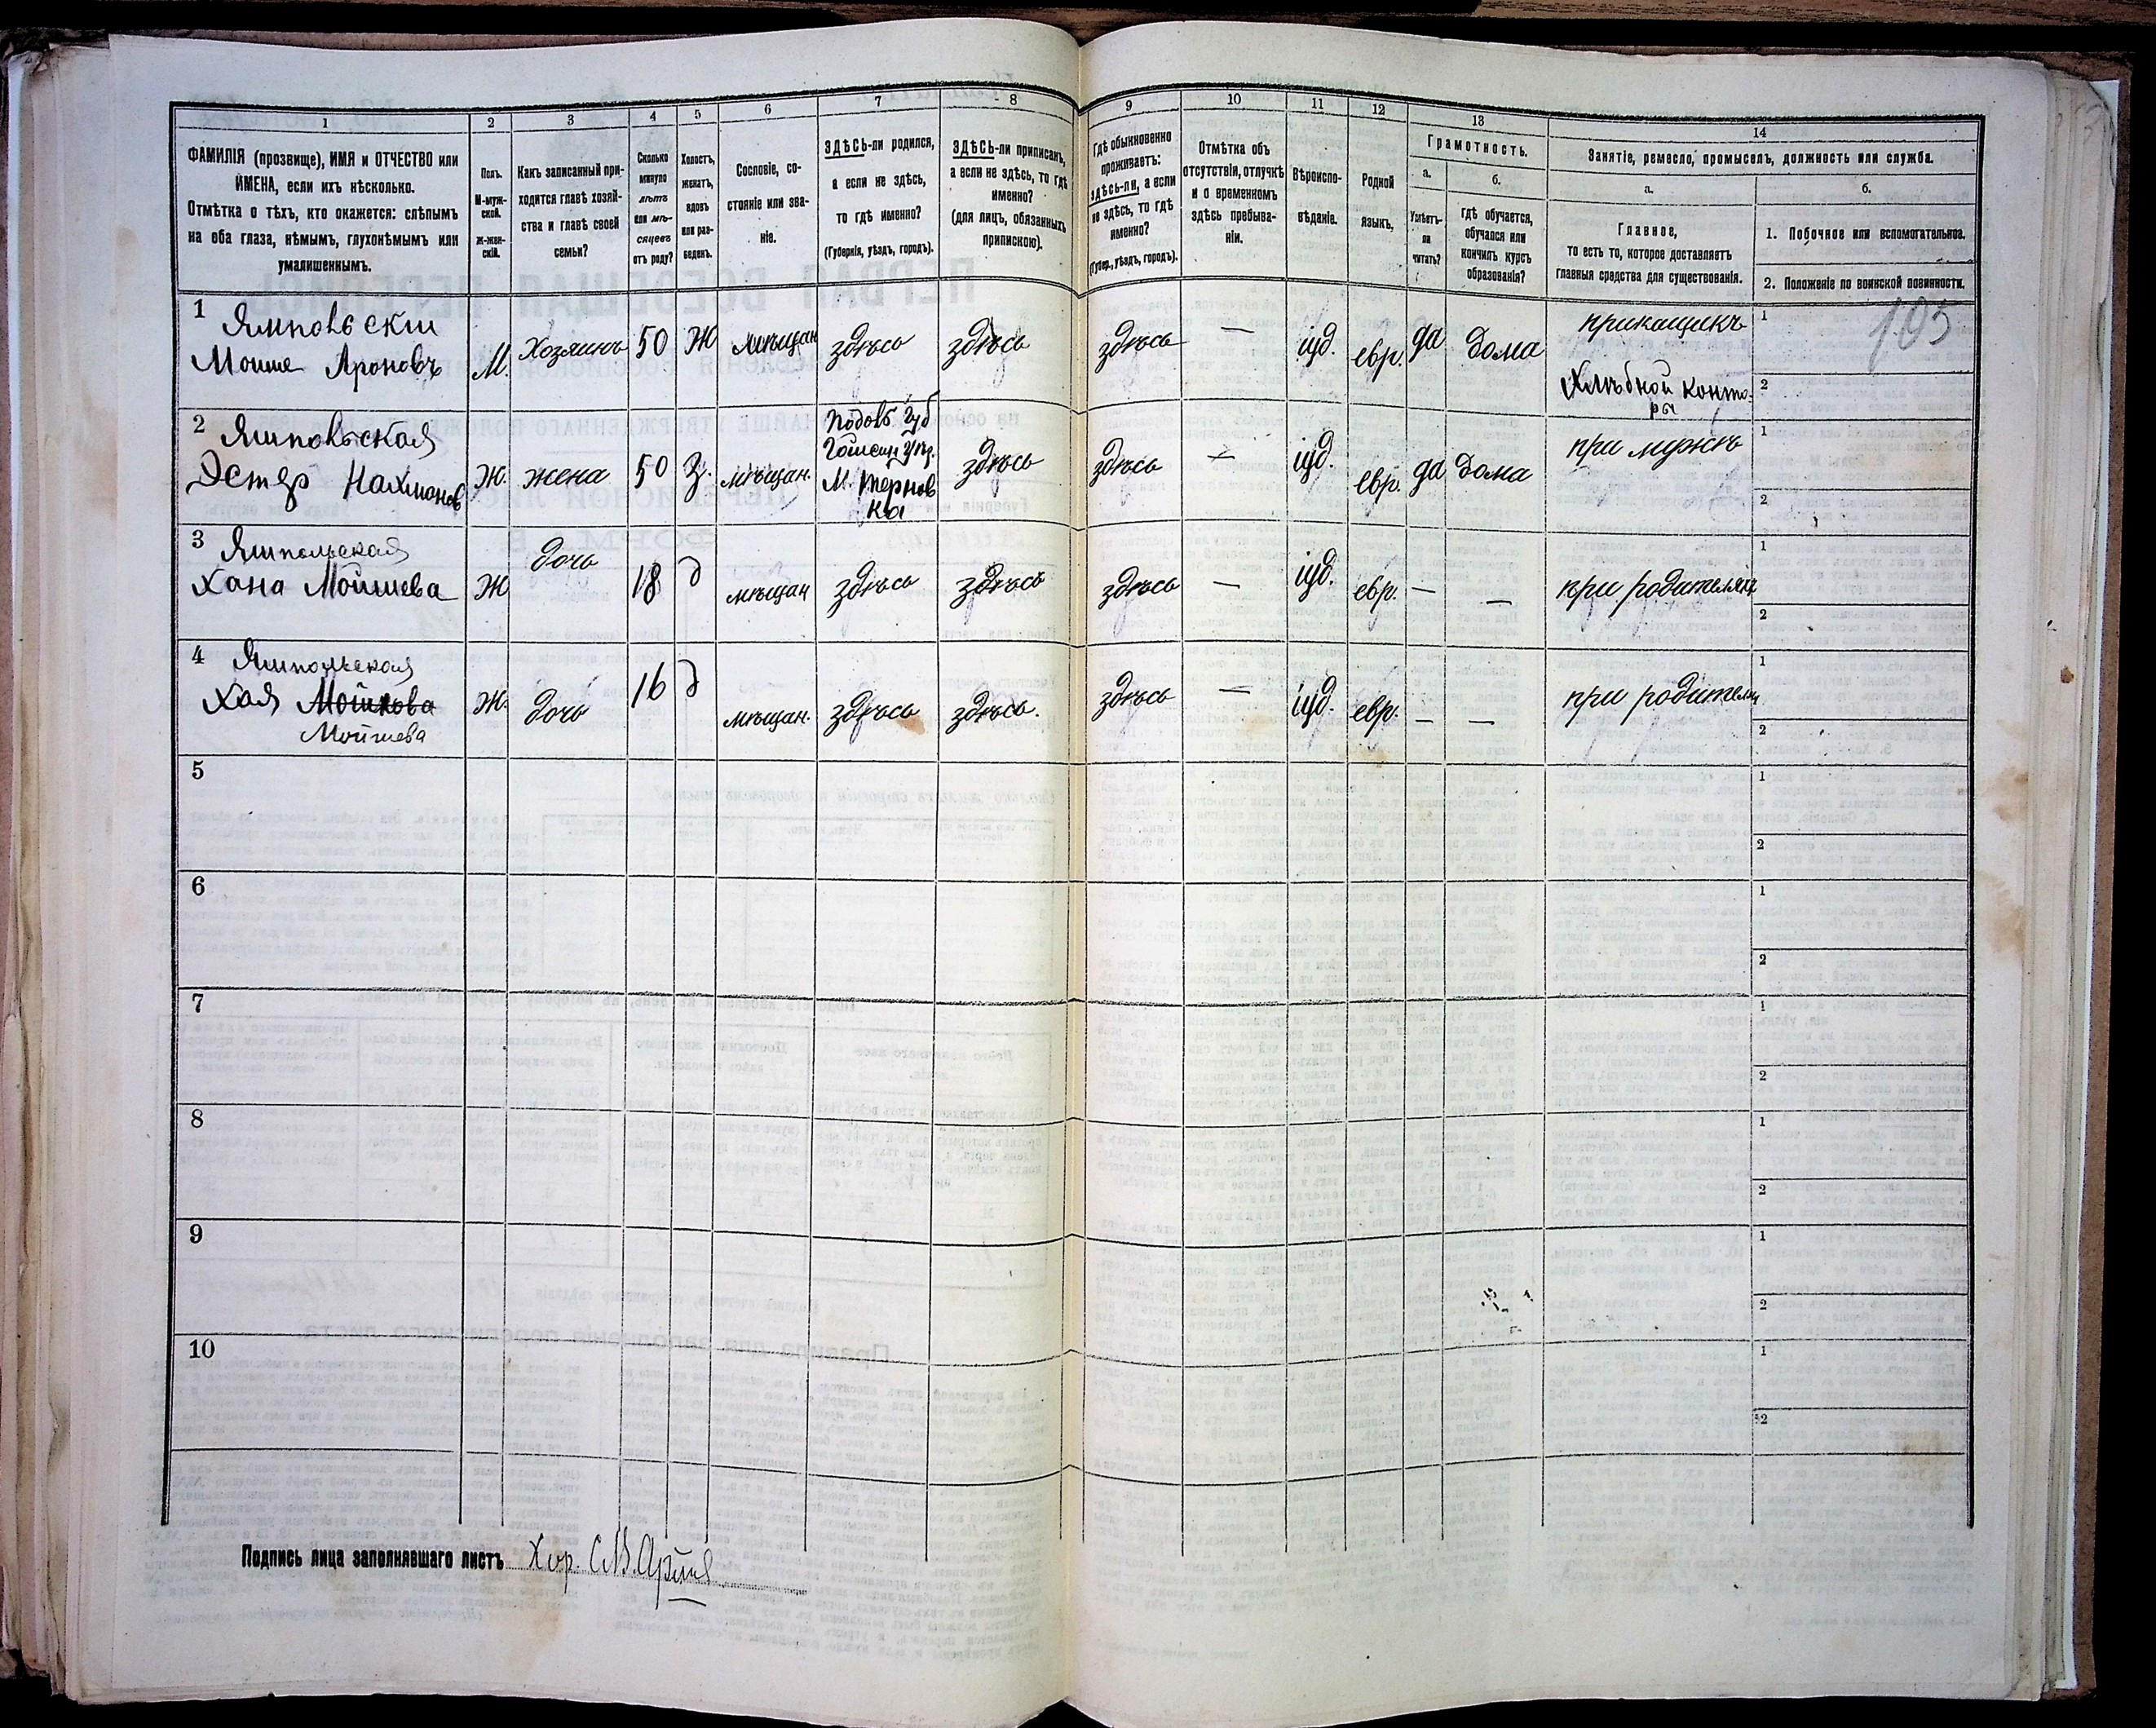 1 2 3 4 5 6 7 8 9 10 11 12 13 14
ФАМИЛІЯ (прозвище), ИМЯ и ОТЧЕСТВО или
ИМЕНА, если ихъ нѣсколько.
Отмѣтка о тѣхъ, кто окажется: слѣпымъ
на оба глаза, нѣмымъ, глухонѣмымъ или
умалишеннымъ.
Полъ.
М-муж-
ской.
Ж-жен-
скій.
Какъ записанный при-
ходится главѣ хозяй-
ства и главѣ своей
семьи?
Сколько
минуло
лѣтъ
или мѣ-
сяцевъ
отъ роду?
Холостъ,
женатъ,
вдовъ
или раз-
веденъ.
Сословіе, со-
стояніе или зва-
ніе.
ЗДѢСЬ-ли родился,
а если не здѣсь,
то гдѣ именно?
(Губернія, уѣздъ, городъ).
ЗДѢСЬ-ли приписанъ,
а если не здѣсь, то гдѣ
именно?
(для лицъ, обязанныхъ
припискою).
Гдѣ обыкновенно
проживаетъ:
здѣсь-ли, а если
не здѣсь, то гдѣ
именно?
(Губер., уѣздъ, городъ).
Отмѣтка объ
отсутствіи, отлучкѣ
и о временномъ
здѣсь пребыва-
ніи.
Вѣроиспо-
вѣданіе.
Родной
языкъ.
Грамотность.
а.
Умѣетъ-
ли
читать?
б.
Гдѣ обучается,
обучался или
кончилъ курсъ
образованія?
Занятіе, ремесло, промыселъ, должность или служба.
а.
Главное,
то есть то, которое доставляетъ
главныя средства для существованія.
б.
1. Побочное или вспомогательное.
2. Положеніе по воинской повинности.
1 Ямпольскій
Мошие Ароновъ М. Хозяинъ 50 Ж мѣщан здѣсь здѣсь здѣсь — іуд. евр. да дома
прикащикъ
Хлѣбной конто-
ры
1 105
2
2 Ямпольская
Эстер Нахманов Ж. жена 50 З. мѣщан.
Подоль губ
М. Тернов
ка
здѣсь здѣсь — іуд. евр. да дома при мужѣ
1
2
3 Ямпольская
Хана Мойшева Ж дочь 18 д мѣщан здѣсь здѣсь здѣсь — іуд. евр. — — при родителях
1
2
4 Ямпольская
Хая Мошкова
Мойшева
Ж. дочь 16 д мѣщан. здѣсь здѣсь. здѣсь — іуд. евр. — — при родителя
1
2
5 1
2
6 1
2
7 1
2
8 1
2
9 1
2
10 1
2
Подпись лица заполнявшаго листъ